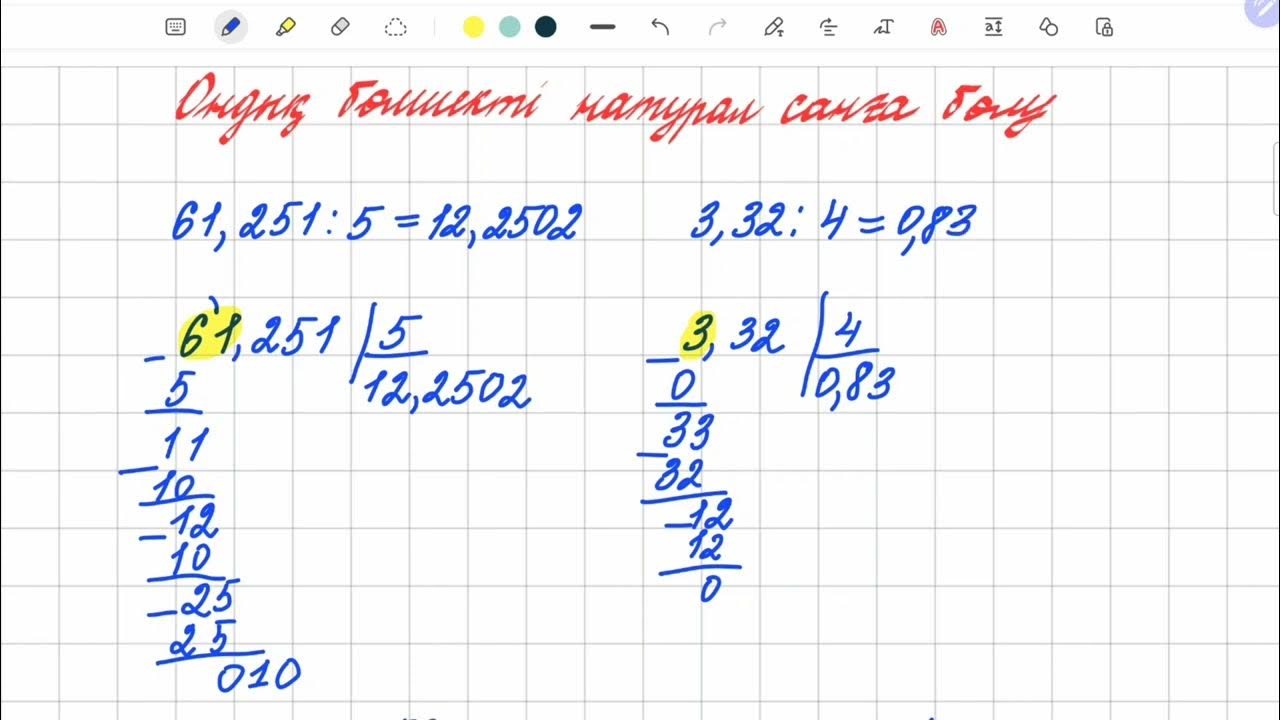 Ондық бөлшекті натурал санға бөлу
61,251 : 5 = 12,2502
3,32 : 4 = 0,83
61,251 | 5
12,2502
5
11
10
12
10
25
25
010
3,32 | 4
0,83
0
33
32
12
12
0